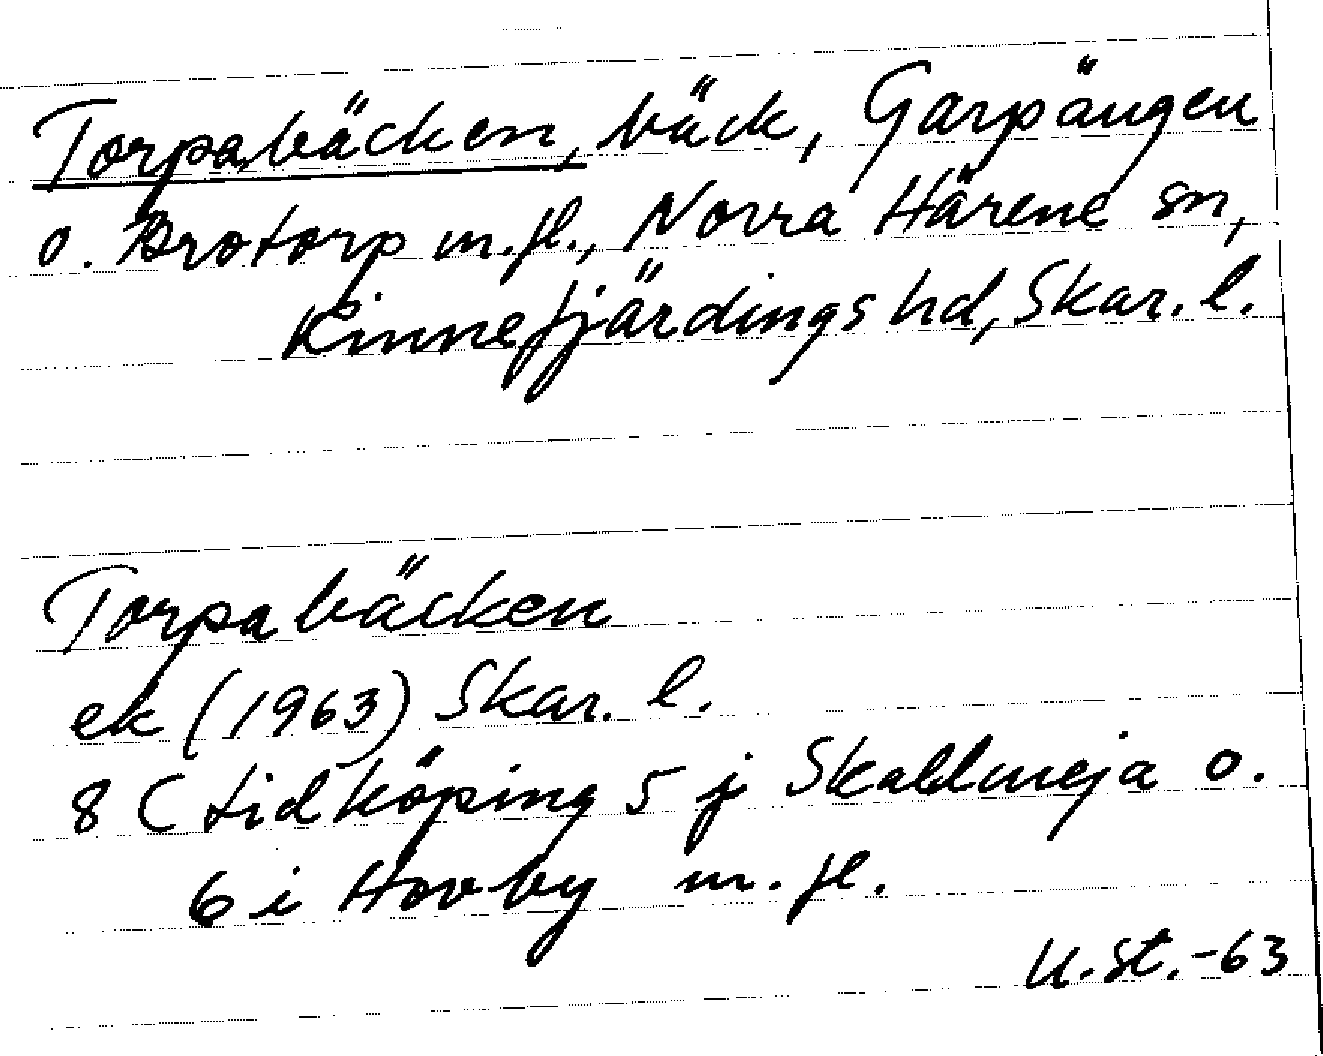 Torpabäcken, bäck, Garpängen
o. Brotorp m.fl., Norra Härene sn,
Kinnefjärdings hd, Skar. l.
Torpabäcken
ek (1963) Skar. l.
8 C Lidköping 5 j Skallmeja o.
6 i Hovby m. fl.
U.St.-63